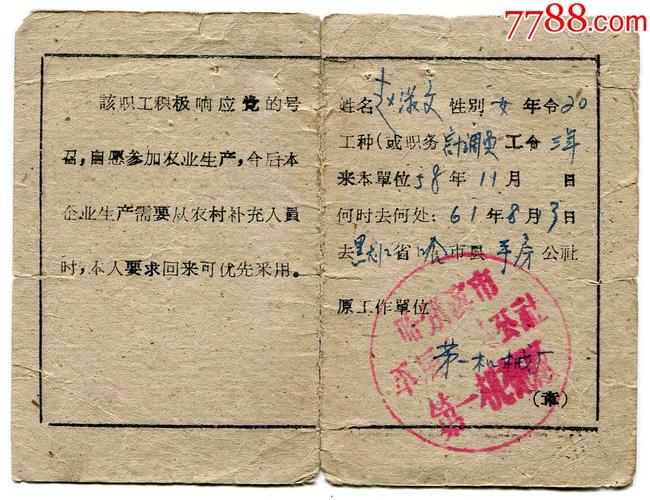 7788.com
中国收藏热线
該职工积极响应党的号
召，自愿参加农业生产，今后本
企业生产需要从农村补充人員
时，本人要求回来可优先采用。
姓名 赵淑文 性别 女 年令 20
工种（或职务 計調員 工令 三年
来本單位 58 年 11 月 日
何时去何处：61 年 8 月 13 日
去 黑龙江 省 哈 市县 平房 公社
原工作單位
第一机械厂
（章）
哈尔濱市
平房 公社
第一机械厂